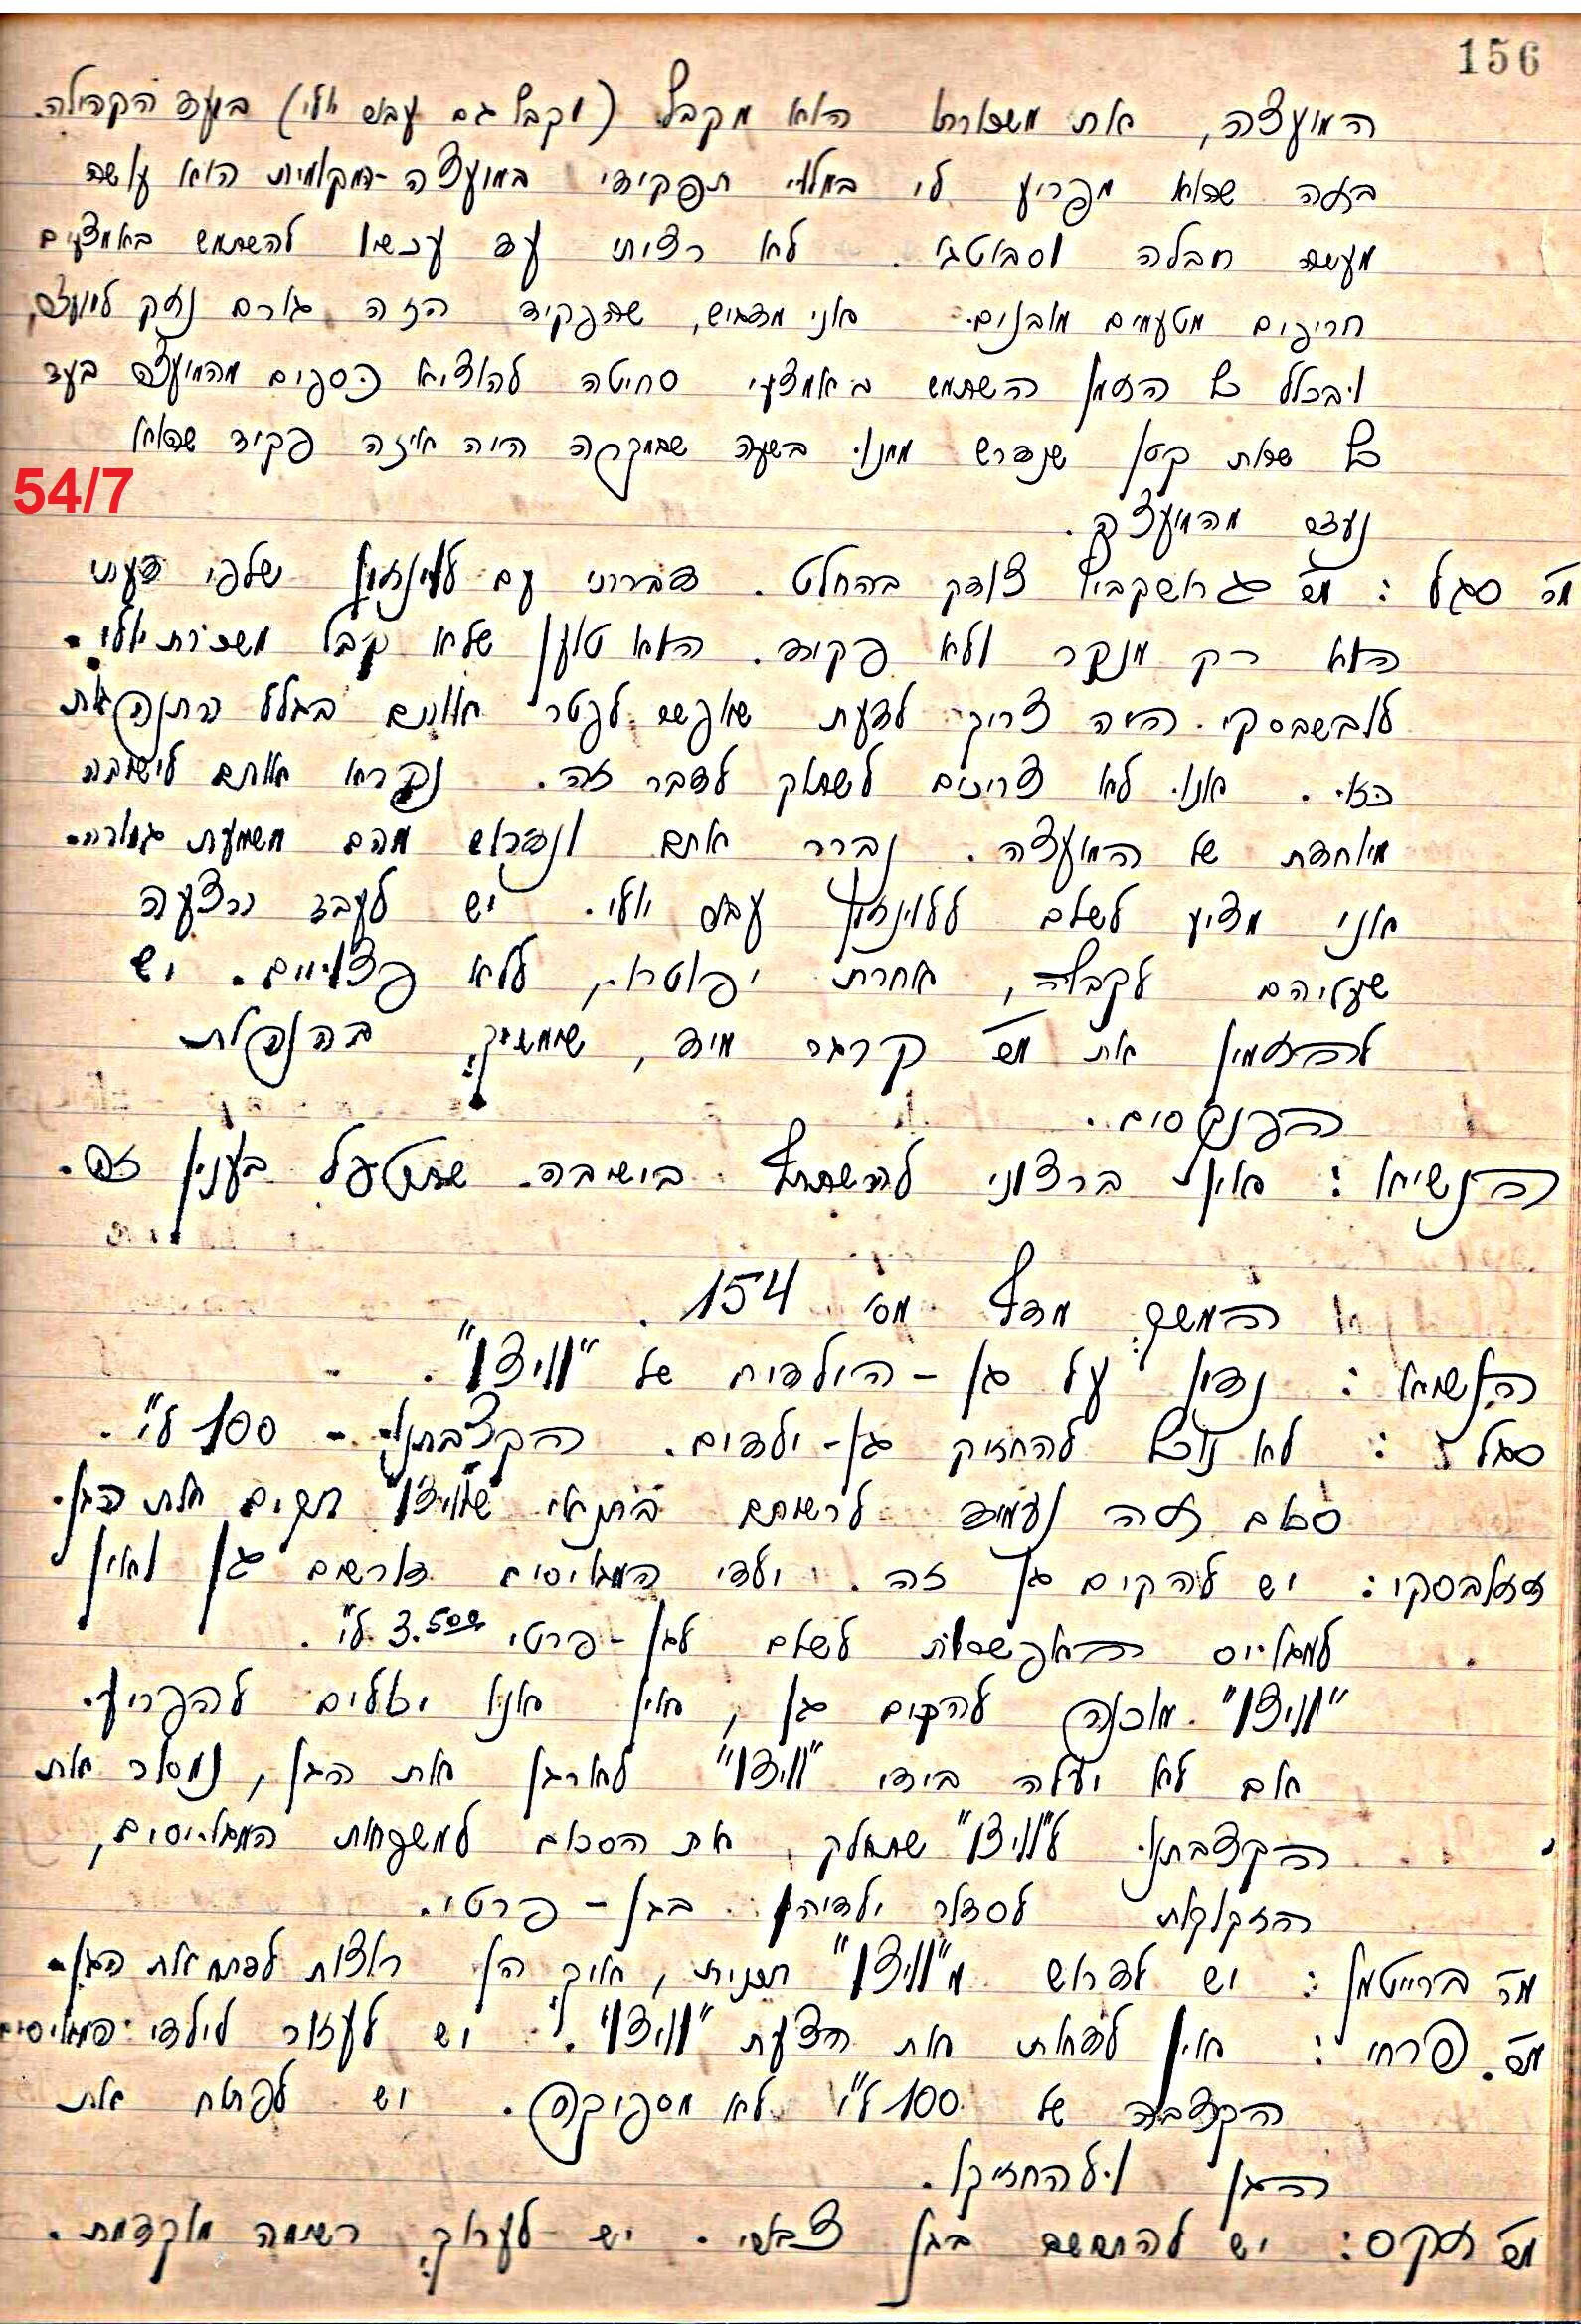 156
המועצה, את משכורתו הוא מקבל (וקבל גם עבור יולי) בועד הקהילה.
בזה שהוא מפריע לי במלוי תפקידי במועצה-המקומית הוא עושה
מעשה חבלה וסבוטג'. לא רציתי עד עכשו להשתמש באמצעים
חריפים מטעמים מובנים. אני מדגיש, שהפקיד הזה גורם נזק למועצה,
ובכלל כל הזמן השתמש באמצעי סחיטה להוציא כספים מהמועצה בעד
כל שרות קטן שנדרש ממנו. בשעה שבמקרה היה איזה פקיד שהוא
נעדר מהמועצה.
54/7
מר סגל : מר גראשקביץ צודק בהחלט. דברתי עם לוינזון שלפי דעתי
הוא רק מנקר ולא פקיד. הוא טוען שלא קבל משכורת יולי.
לובשבסקי היה צריך לדעת שאפשר לפטר אותם בגלל התנהגות
כזו. אנו לא צריכים לשתוק לדבר זה. נקרא אותם לישיבה
מיוחדת של המועצה. נברר אתם ונדרוש מהם משמעת גמורה.
אני מציע לשלם ללוינזון עבור יולי. יש לעבד הצעה
שעליהם לקבלה, אחרת יפוטרו, ללא פצויים. יש
להזמין את מר קרגר מיד, שימשיך בהנהלת
הפנקסים.
הנשיא : אין ברצוני להשתתף בישיבה שתטפל בענין זה.
המשך מדף מס' 154.
הנשיא : נדון על גן-הילדים של "וויצו".
סגל : לא נוכל להחזיק גן-ילדים. הקצבתנו - 100 ל"י.
סכום זה נעמיד לרשותם בתנאי ש"וויצו" תקים את הגן.
זזולבסקי : יש להקים גן זה. ילדי המגויסים דורשים גן ואין
למגויס האפשרות לשלם לגן-פרטי 3.500 ל"י.
"וויצו" מוכנה להקים גן, אין אנו יכולים להפריע.
אם לא יעלה בידי "וויצו" לארגן את הגן, נמסור את
הקצבתנו ל"וויצו" שתחלק את הסכום למשפחות המגויסים,
הזקוקות לסדור ילדיהן בגן-פרטי.
מר ברייטמן : יש לדרוש מ"וויצו" תכנית, איך הן רוצות לפתח את הגן.
מר פרחי : אין לדחות את הצעת "וויצו". יש לעזור לילדי המגויסים
הקצבה של 100 ל"י לא מספיקה. יש לפתח את
הגן ולהחזיקו.
מר זקס : יש להתחשב בגן צבורי. יש לערוך רשימה מוקדמת.